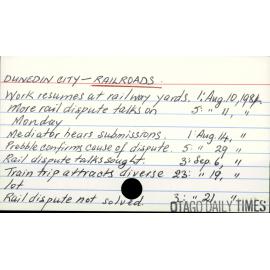 DUNEDIN CITY — RAILROADS.
Work resumes at railway yards. 1: Aug. 10, 1984.
More rail dispute talks on 5: " 11, "
Monday
Mediator hears submissions. 1: Aug. 14, "
Prebble confirms cause of dispute. 5: " 29 "
Rail dispute talks sought. 3: Sep. 6, "
Train trip attracts diverse 23: " 19, "
lot
Rail dispute not solved. 3: " 21 "
OTAGO DAILY TIMES